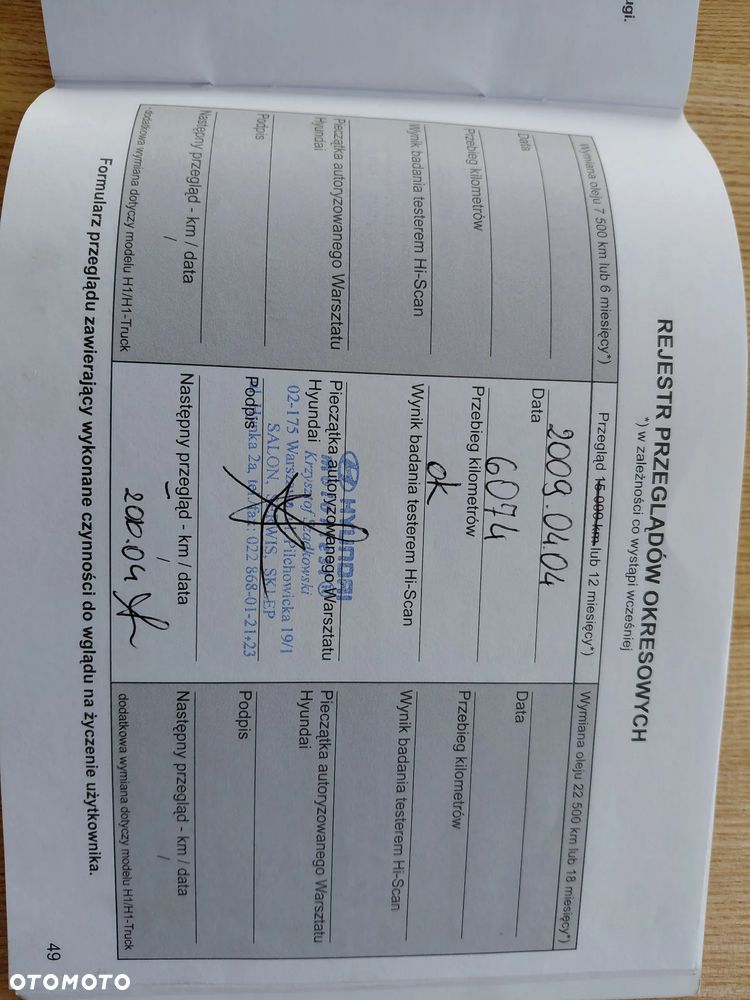 ugi.
REJESTR PRZEGLĄDÓW OKRESOWYCH
*) w zależności co wystąpi wcześniej
Wymiana oleju 7 500 km lub 6 miesięcy*)
Data
Przebieg kilometrów
Wynik badania testerem Hi-Scan
Pieczątka autoryzowanego Warsztatu
Hyundai
Podpis
Następny przegląd - km / data
/
dodatkowa wymiana dotyczy modelu H1/H1-Truck
Przegląd 15 000 km lub 12 miesięcy*)
Data
2009.04.04
Przebieg kilometrów
6074
Wynik badania testerem Hi-Scan
ok
Pieczątka autoryzowanego Warsztatu
Hyundai
HYUNDAI
Krzysztof
02-175 Warszawa Pilchowicka 19/1
SALON, SERWIS, SKLEP
2a, tel./fax: 022 868-01-21÷23
Podpis
Następny przegląd - km / data
/
200.04
Wymiana oleju 22 500 km lub 18 miesięcy*)
Data
Przebieg kilometrów
Wynik badania testerem Hi-Scan
Pieczątka autoryzowanego Warsztatu
Hyundai
Podpis
Następny przegląd - km / data
/
dodatkowa wymiana dotyczy modelu H1/H1-Truck
Formularz przeglądu zawierający wykonane czynności do wglądu na życzenie użytkownika.
49
OTOMOTO